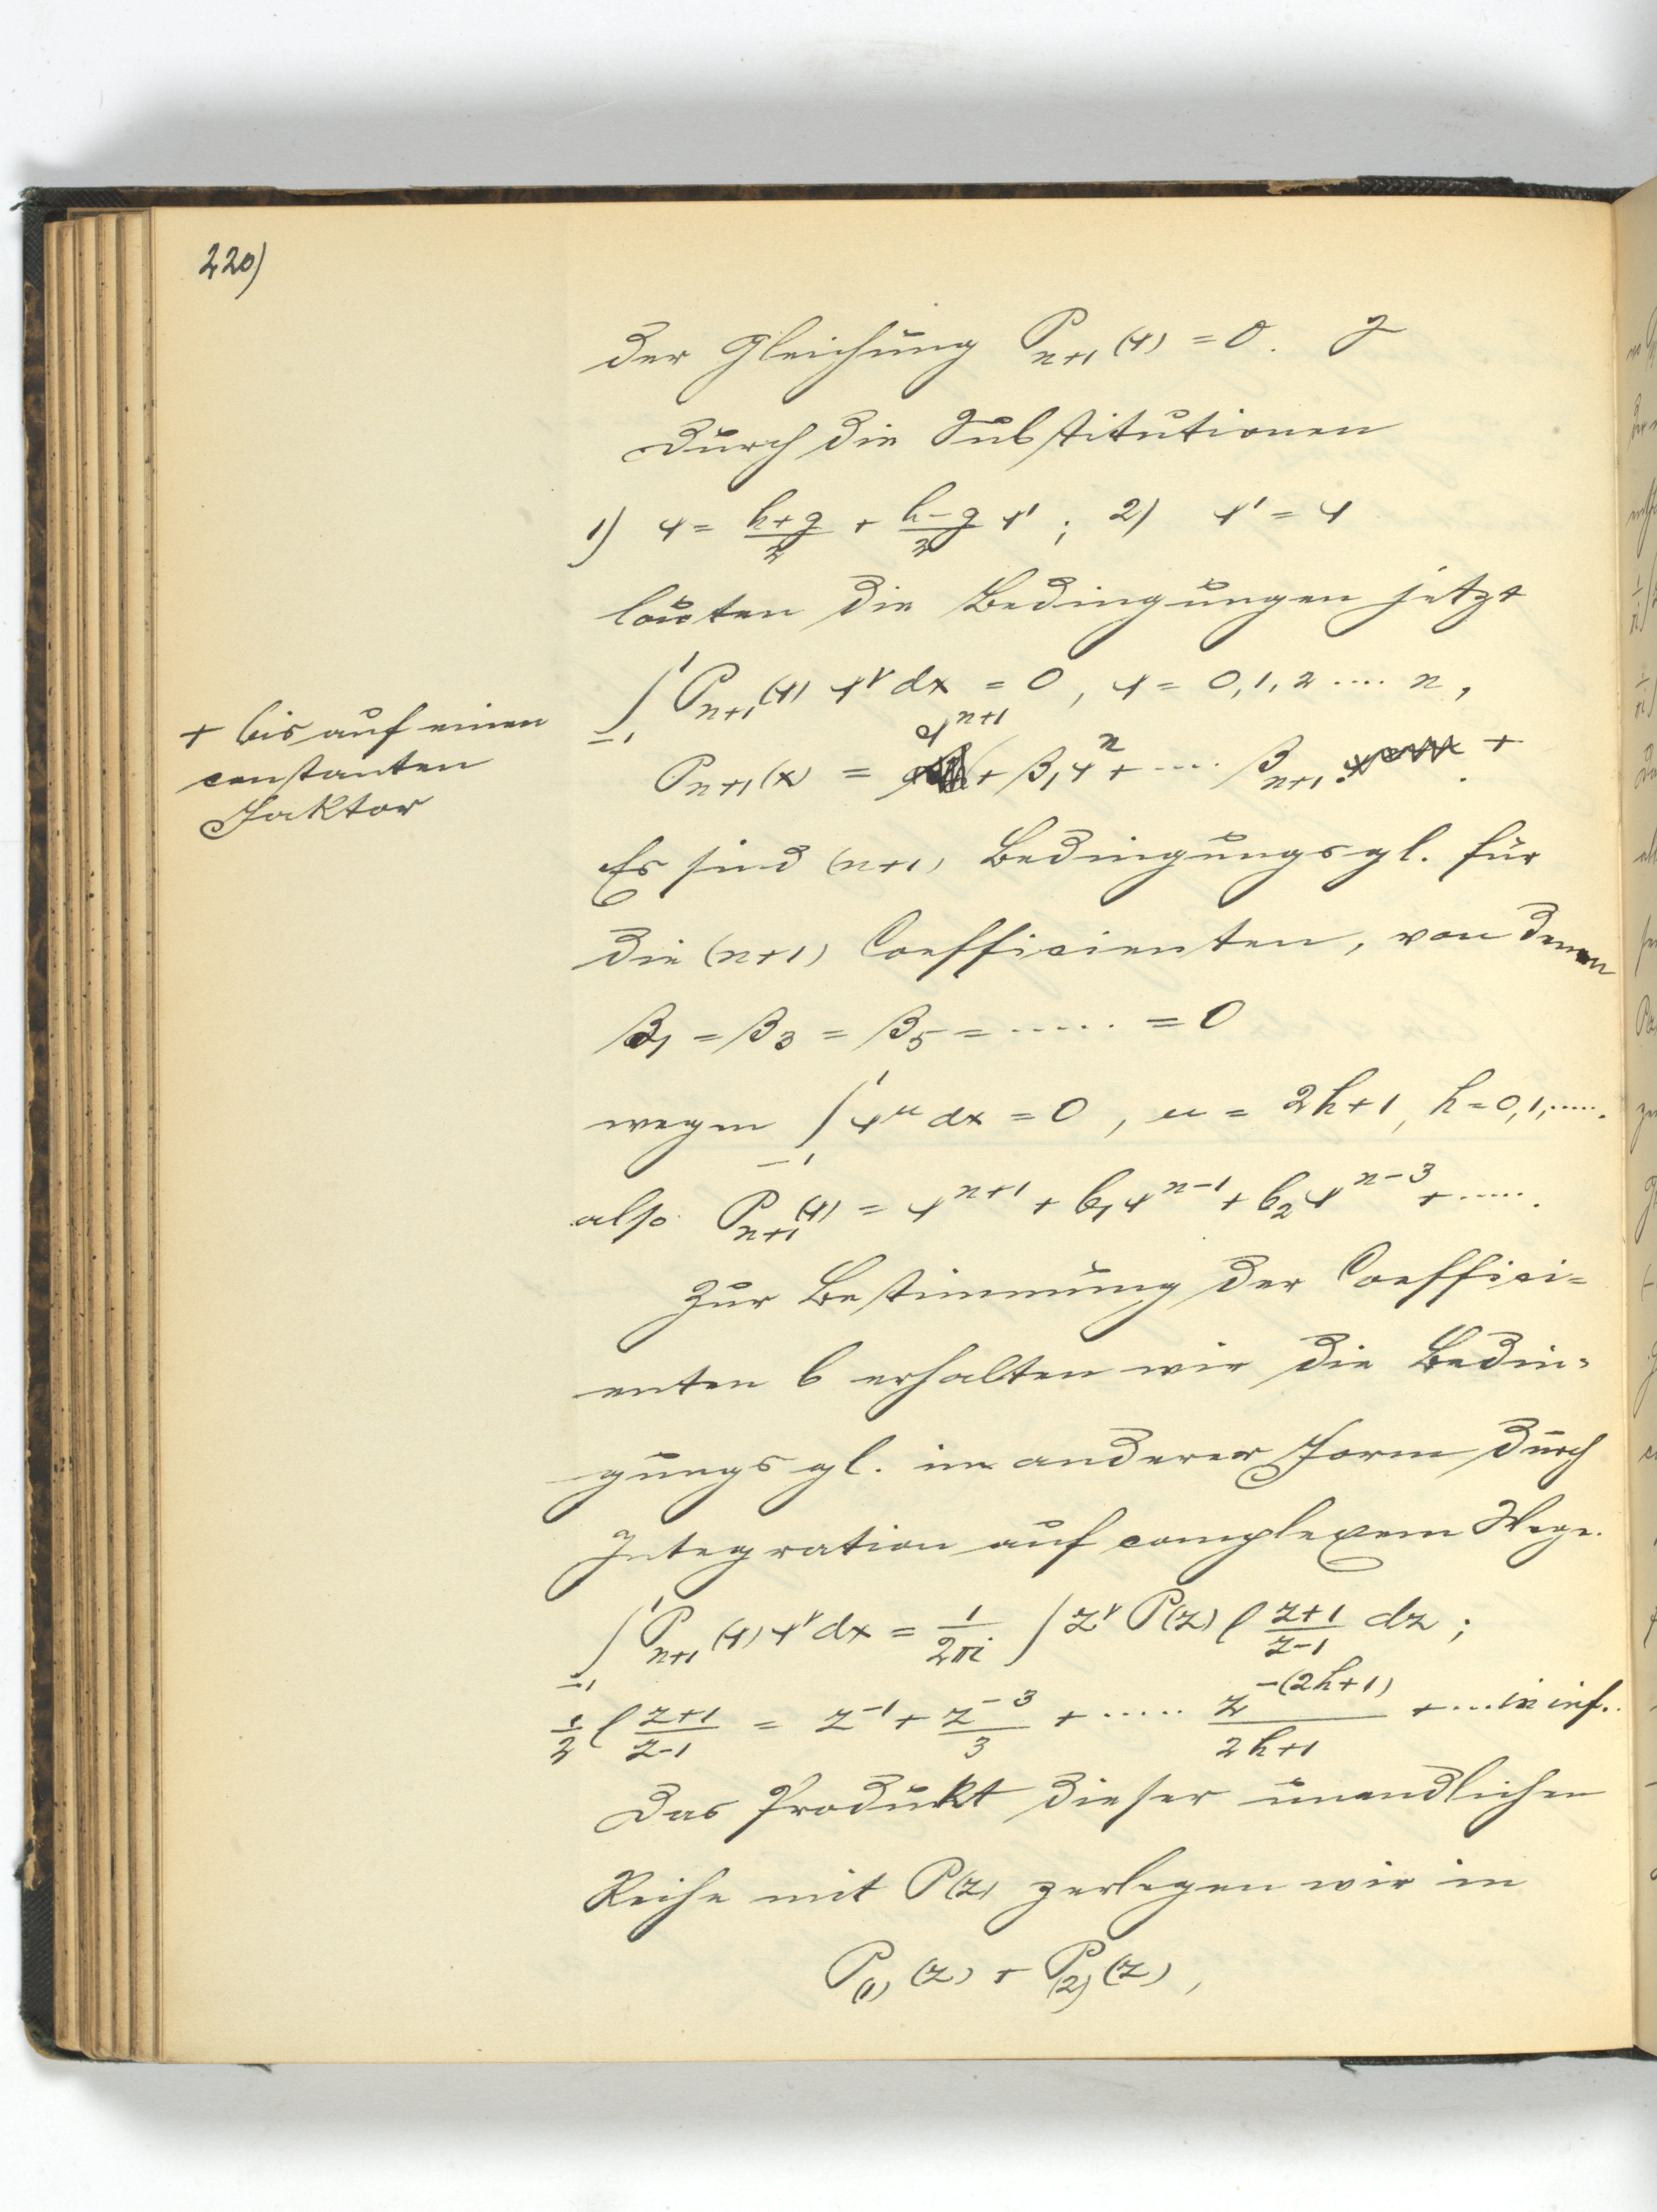 220)
der Gleichung P_{n+1}(x) = 0.
Durch die Substitutionen
1) x = \frac{h+g}{2} + \frac{h-g}{2} x' ; 2) x' = x
lauten die Bedingungen jetzt
\int_{-1}^{1} P_{n+1}(x) x^ν dx = 0, ν = 0, 1, 2 .... n,
+ bis auf einen
constanten
Faktor
P_{n+1}(x) = x^{n+1} + β_1 x^n + .... β_{n+1}. +
Es sind (n+1) Bedingungsgl. für
die (n+1) Coefficienten, von denen
β_1 = β_3 = β_5 = ..... = 0
wegen \int_{-1}^{1} x^μ dx = 0, μ = 2h+1, h = 0, 1, .....
also P_{n+1}(x) = x^{n+1} + b_1 x^{n-1} + b_2 x^{n-3} + .....
Zur Bestimmung der Coeffici=
enten b erhalten wir die Bedin=
gungsgl. in anderer Form durch
Integration auf complexem Wege.
\int_{-1}^{1} P_{n+1}(x) x^ν dx = \frac{1}{2πi} \int z^ν P(z) l \frac{z+1}{z-1} dz ;
\frac{1}{2} l \frac{z+1}{z-1} = z^{-1} + \frac{z^{-3}}{3} + ..... \frac{z^{-(2h+1)}}{2h+1} + ... in inf.
Das Produkt dieser unendlichen
Reihe mit P(z) zerlegen wir in
P_{(1)}(z) + P_{(2)}(z),